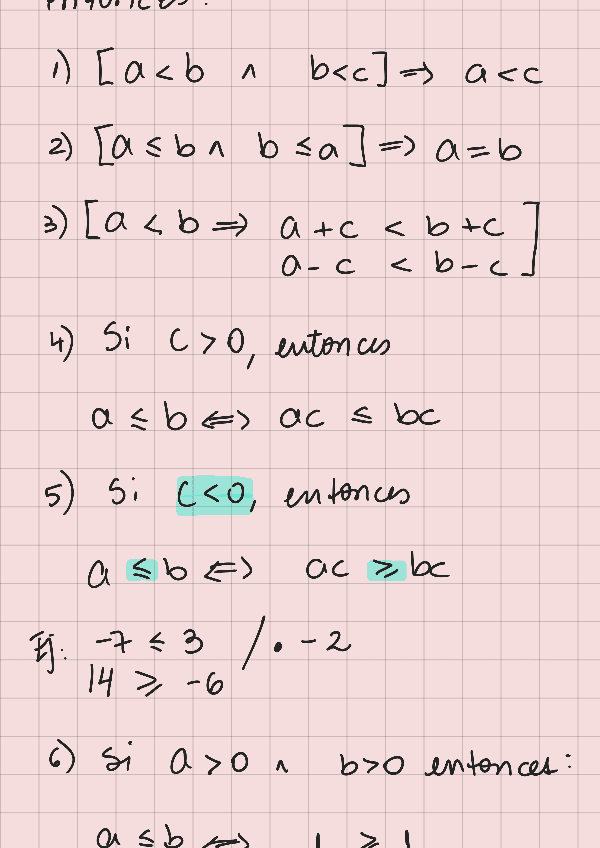 1) [a < b ∧ b < c] ⇒ a < c
2) [a ≤ b ∧ b ≤ a] ⇒ a = b
3) [a < b ⇒ a + c < b + c
a - c < b - c]
4) Si c > 0, entonces
a ≤ b ⇔ ac ≤ bc
5) Si c < 0, entonces
a ≤ b ⇔ ac ≥ bc
Ej: -7 ≤ 3 / • -2
14 ≥ -6
6) Si a > 0 ∧ b > 0 entonces:
a ≤ b ⇔ 1 ≥ 1